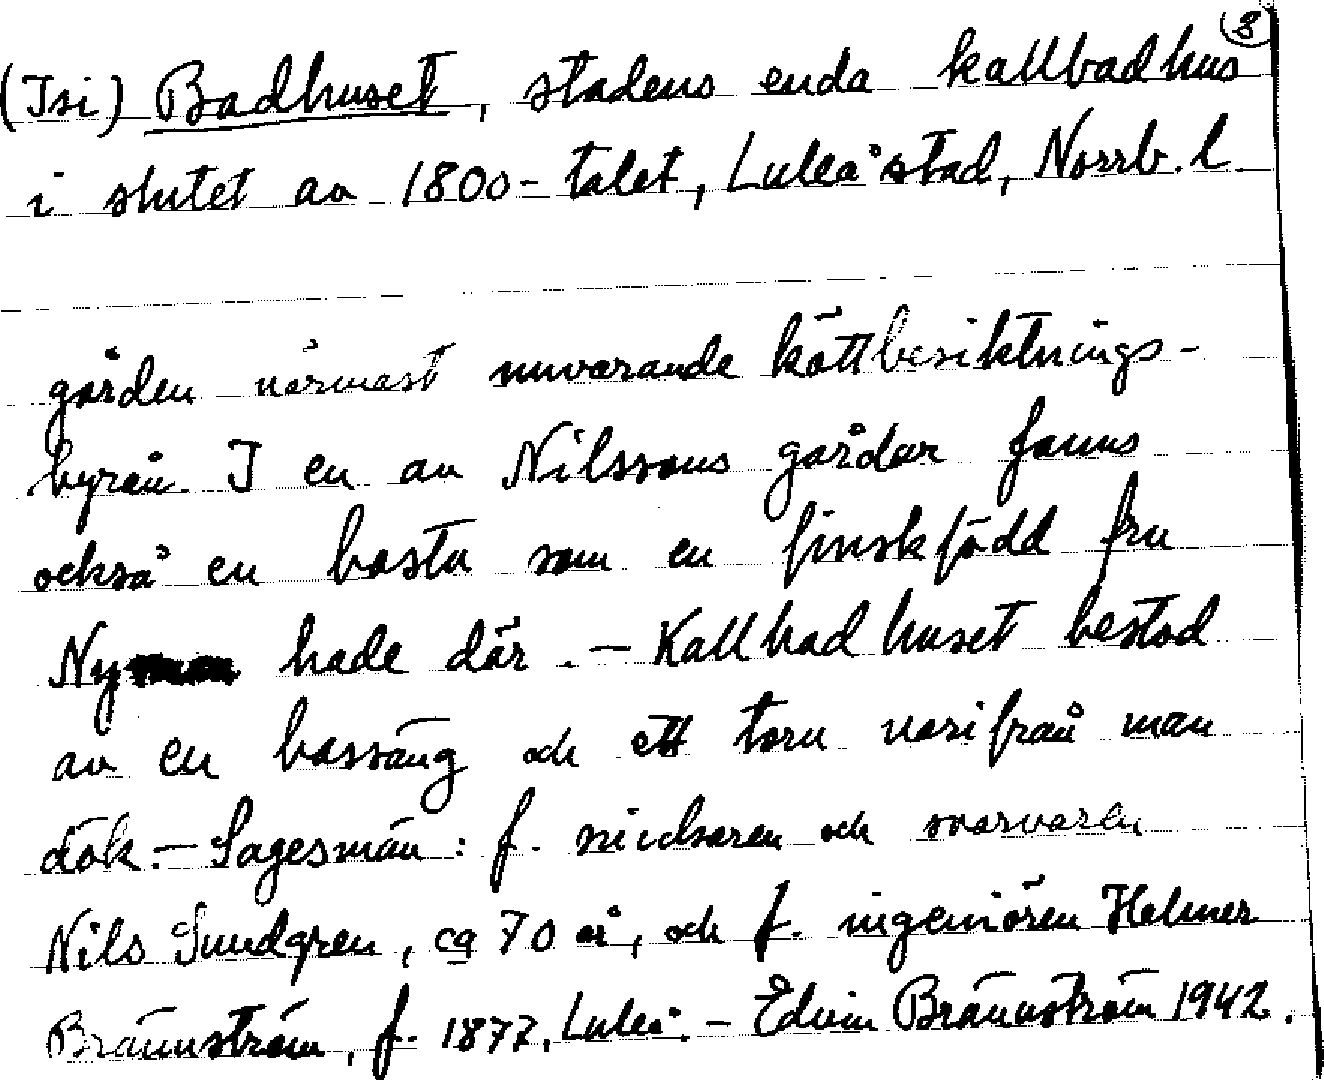 3
(Isi) Badhuset, stadens enda kallbadhus
i slutet av 1800-talet, Luleå stad, Norrb. l
gården närmast nuvarande köttbesiktnings-
byrån. I en av Nilssons gårdar fanns
också en bastu som en finskfödd fru
Nyman hade där. - Kallbadhuset bestod
av en bassäng och ett torn varifrån man
dök. - Sagesmän: f. snickaren och svarvaren
Nils Sundgren, ca 70 år, och f. ingeniören Helmer
Brännström, f. 1877, Luleå. - Edvin Brännström 1942.